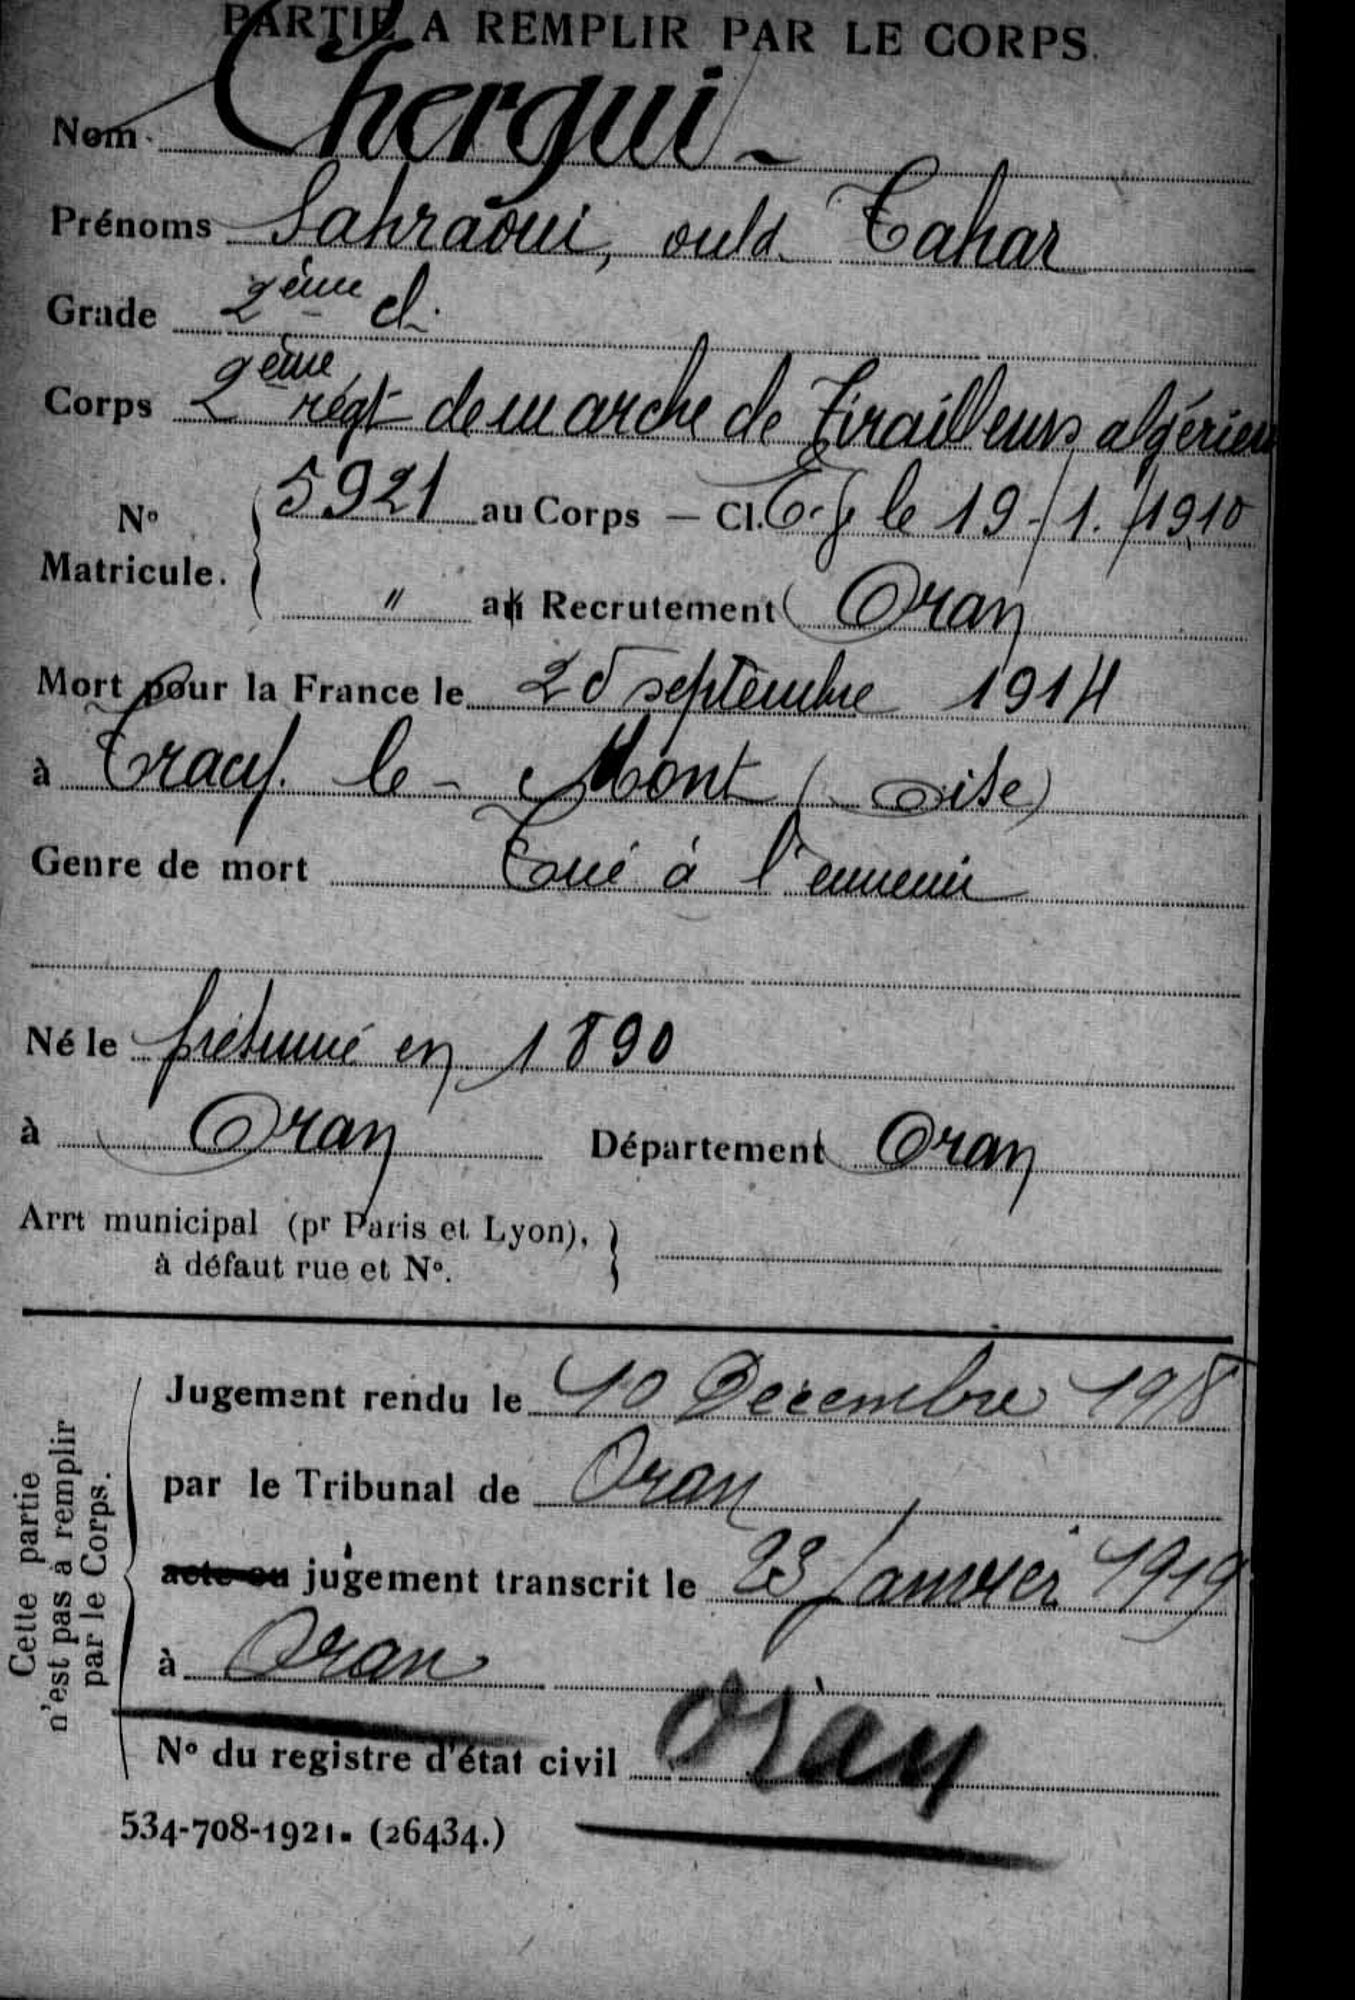 PARTIE A REMPLIR PAR LE CORPS.
Nom Chergui -
Prénoms Sahraoui, ould Tahar
Grade 2ème cl.
Corps 2ème régt de marche de Tirailleurs algériens
No Matricule. { 5921 au Corps — Cl. E.V. le 19/1./1910
" au Recrutement Oran
Mort pour la France le 20 septembre 1914
à Tracy-le-Mont (Oise)
Genre de mort Tué à l'ennemi
Né le présumé en 1890
à Oran Département Oran
Arrt municipal (pr Paris et Lyon), à défaut rue et No. }
Cette partie n'est pas à remplir par le Corps.
Jugement rendu le 10 Décembre 1918
par le Tribunal de Oran
acte ou jugement transcrit le 23 Janvier 1919
à Oran
No du registre d'état civil Oran
534-708-1921. (26434.)